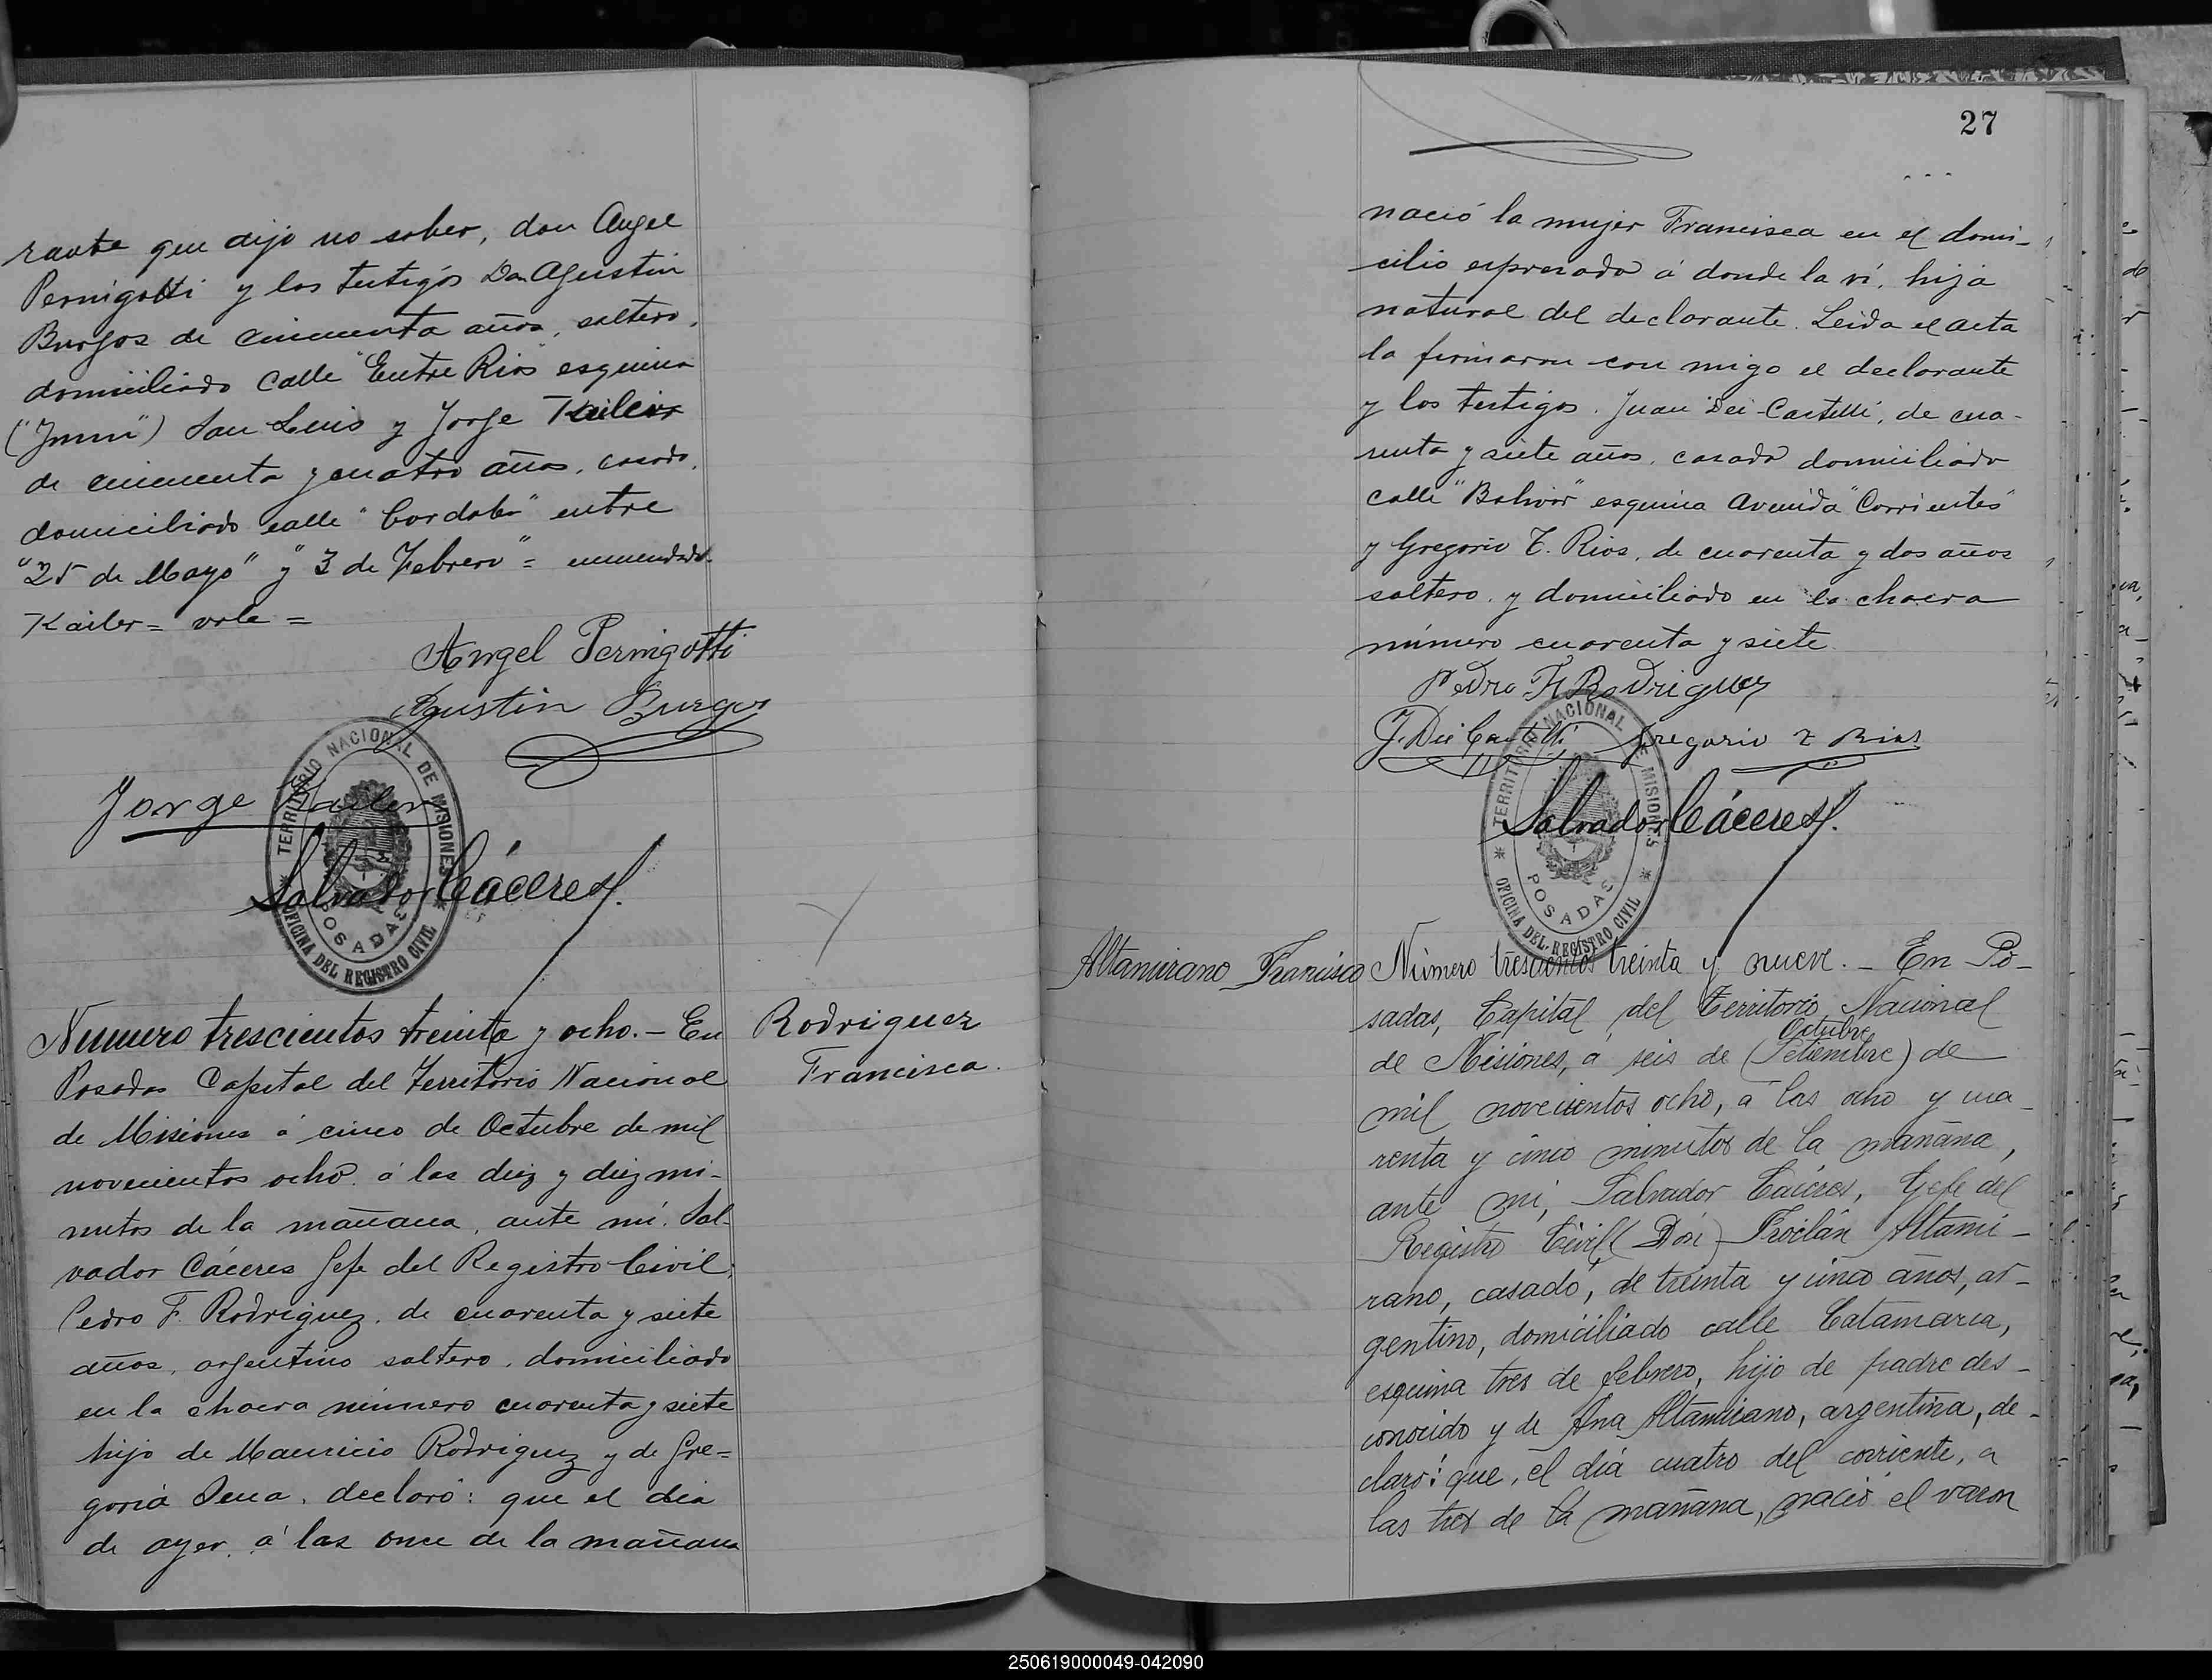 rante que dijo no saber, don Angel
Pernigotti y los testigos Don Agustin
Burgos de cincuenta años, soltero,
domiciliado calle "Entre Rios" esquina
("Junin") San Luis y Jorge Kailer
de cincuenta y cuatro años, casado,
domiciliado calle "Cordoba" entre
"25 de Mayo" y "3 de Febrero" = enmendado.
Kailer = vale =
Angel Pernigotti
Agustin Burgos
Jorge Kailer
Salvador Cáceres
TERRITORIO NACIONAL DE MISIONES
POSADAS
OFICINA DEL REGISTRO CIVIL
Rodriguez
Francisca.
Numero trescientos treinta y ocho. - En
Posadas Capital del Territorio Nacional
de Misiones á cinco de Octubre de mil
novecientos ocho. á las diez y diez mi-
nutos de la mañana, ante mí. Sal-
vador Cáceres Gefe del Registro Civil;
Pedro F. Rodriguez, de cuarenta y siete
años, argentino soltero, domiciliado
en la chacra número cuarenta y siete
hijo de Mauricio Rodriguez y de Gre=
goria declaró: que el dia
de ayer, á las once de la mañana
27
nació la mujer Francisca en el domi-
cilio espresado á donde la ví, hija
natural del declarante. Leida el acta
la firmaron con migo el declarante
y los testigos. Juan Dei-Castelli, de cua-
renta y siete años, casado domiciliado
calle "Bolivar" esquina Avenida "Corrientes"
y Gregorio T. Rios, de cuarenta y dos años
soltero. y domiciliado en la chacra
número cuarenta y siete.
Pedro F. Rodriguez
J. Dei Castelli Gregorio T Rios
Salvador Cáceres
TERRITORIO NACIONAL DE MISIONES
POSADAS
OFICINA DEL REGISTRO CIVIL
Altamirano Francisco
Número trescientos treinta y nueve. - En Po-
sadas, Capital del Territorio Nacional
Octubre
de Misiones, á seis de (Setiembre) de
mil novecientos ocho, á las ocho y cua-
renta y cinco minutos de la mañana,
ante mi, Salvador Cáceres, Gefe del
Registro Civil (Don) Froilán Altami-
rano, casado, de treinta y cinco años, ar-
gentino, domiciliado calle Catamarca,
esquina tres de febrero, hijo de padre des-
conocido y de Ana Altamirano, argentina, de-
claró: que, el dia cuatro del corriente, a
las tres de la mañana, nació el varon
250619000049-042090